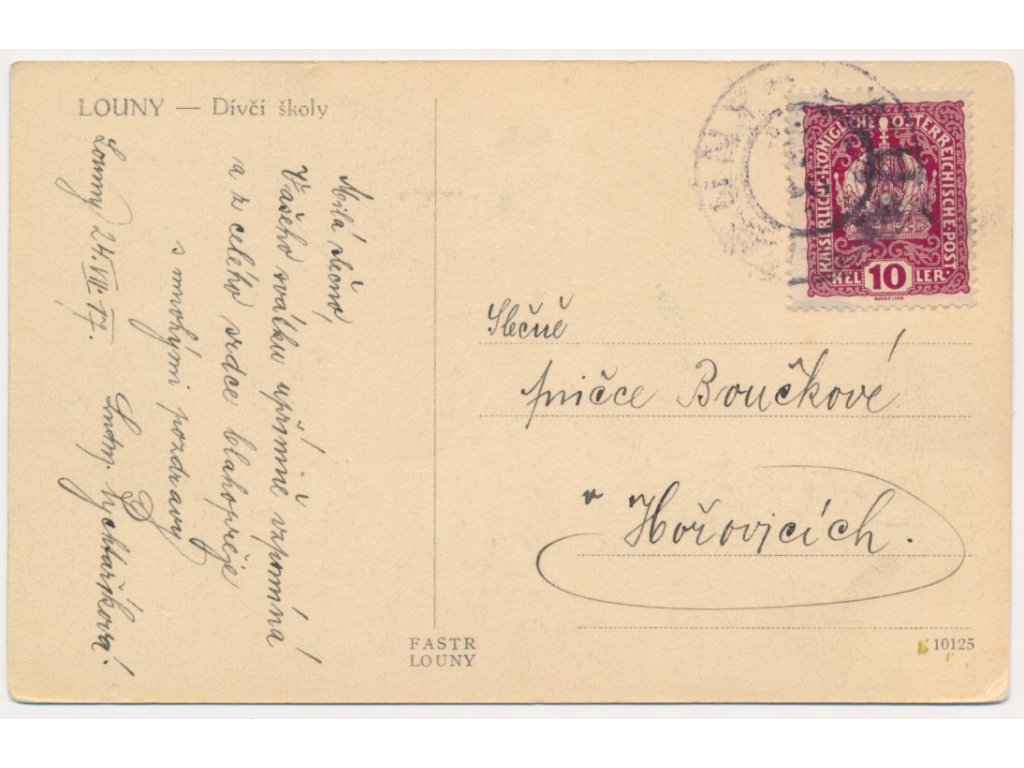 LOUNY — Dívčí školy
Milá slečno,
Vašeho svátku upřímně vzpomíná
a z celého srdce blahopřeje
s mnohými pozdravy
Ludm. Rychtaříková.
Louny 24. VII. 17.
KAISERLICHE KÖNIGLICHE ÖSTERREICHISCHE POST
HEL 10 LER
Slečně
Boučkové
v
Hořovicích.
FASTR
LOUNY
10125